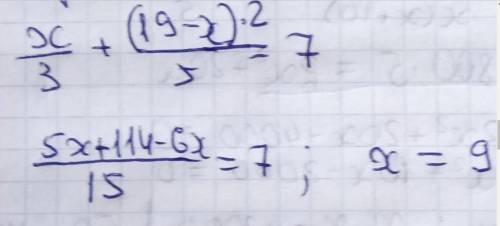 x/3 + (19-x)·2/5 = 7
5x+114-6x/15 = 7; x = 9